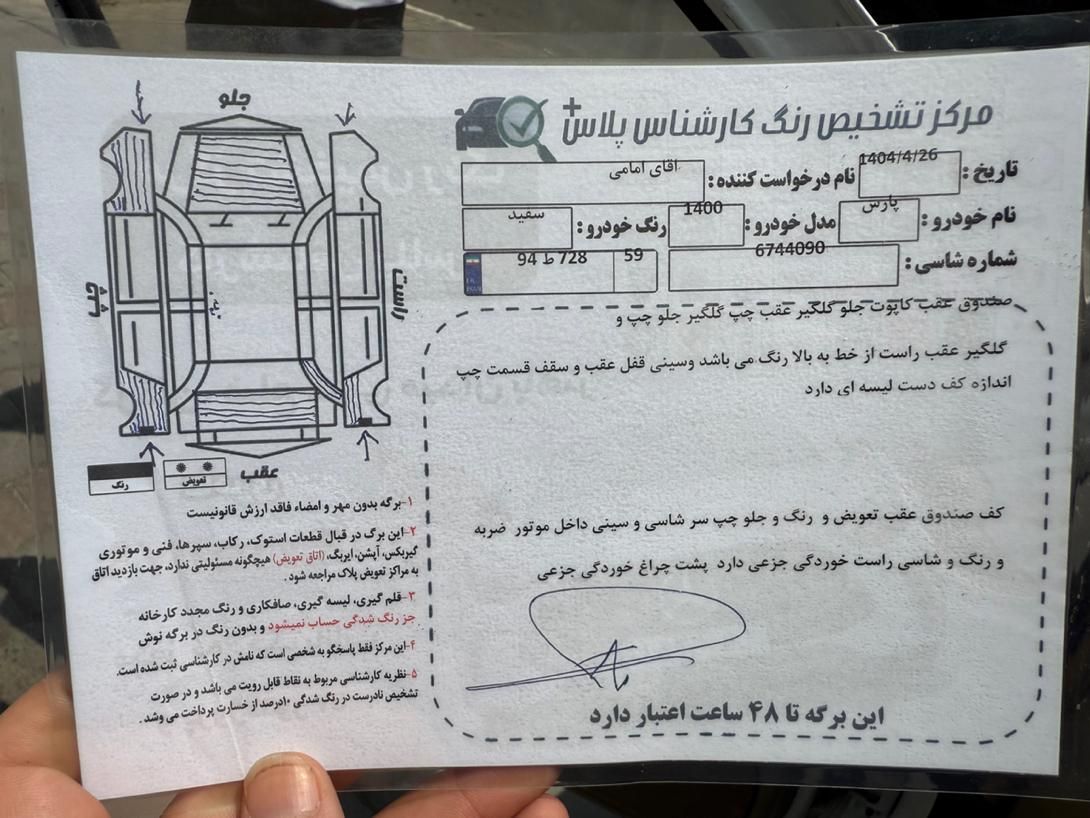 مرکز تشخیص رنگ کارشناس پلاس+
تاریخ : 1404/4/26 نام درخواست کننده : آقای امامی
نام خودرو : پارس مدل خودرو : 1400 رنگ خودرو : سفید
شماره شاسی : 6744090 59 728 ط 94
صندوق عقب کاپوت جلو گلگیر عقب چپ گلگیر جلو چپ و
گلگیر عقب راست از خط به بالا رنگ می باشد وسینی قفل عقب و سقف قسمت چپ
اندازه کف دست لیسه ای دارد
کف صندوق عقب تعویض و رنگ و جلو چپ سر شاسی و سینی داخل موتور ضربه
و رنگ و شاسی راست خوردگی جزعی دارد پشت چراغ خوردگی جزعی
این برگه تا ۴۸ ساعت اعتبار دارد
جلو
چپ
راست
عقب
رنگ
تعویض
۱-برگه بدون مهر و امضاء فاقد ارزش قانونیست
۲-این برگ در قبال قطعات استوک، رکاب، سپرها، فنی و موتوری
گیربکس، آپشن، ایربگ، (اتاق تعویض) هیچگونه مسئولیتی ندارد، جهت بازدید اتاق
به مراکز تعویض پلاک مراجعه شود .
۳-قلم گیری، لیسه گیری، صافکاری و رنگ مجدد کارخانه
جز رنگ شدگی حساب نمیشود و بدون رنگ در برگه نوش
۴-این مرکز فقط پاسخگو به شخصی است که نامش در کارشناسی ثبت شده است.
۵-نظریه کارشناسی مربوط به نقاط قابل رویت می باشد و در صورت
تشخیص نادرست در رنگ شدگی ۱۰درصد از خسارت پرداخت می وشد .